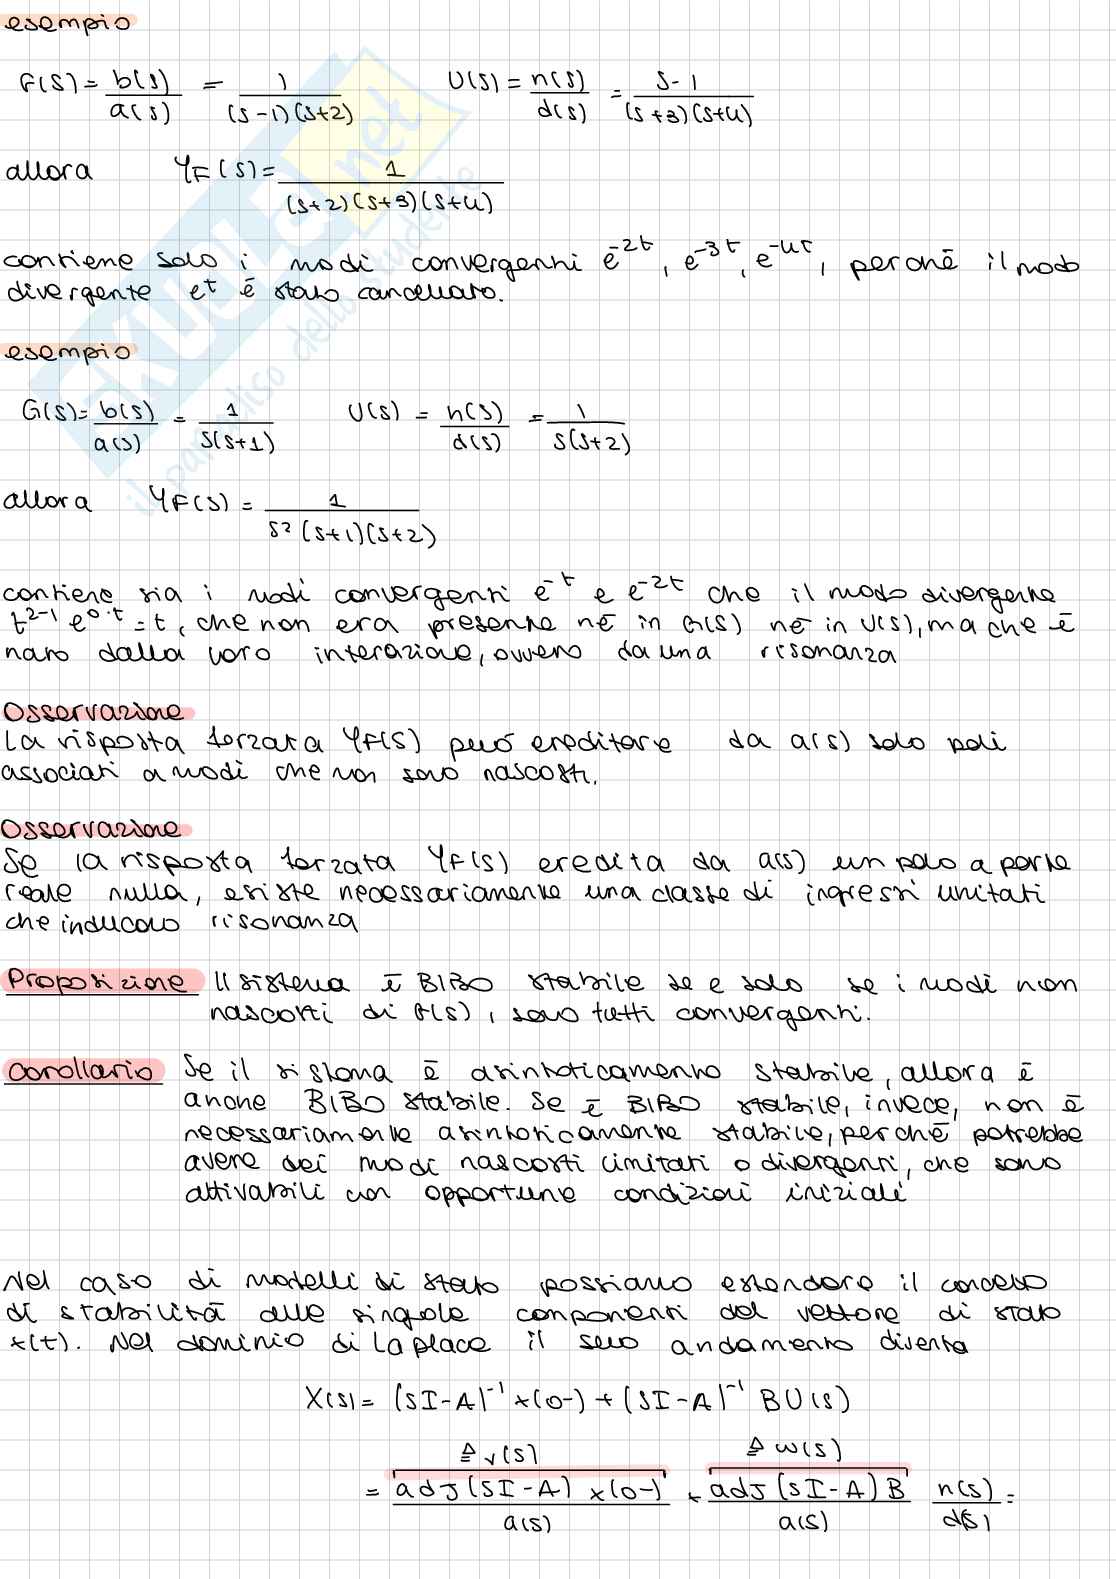 esempio
G(s) = b(s)/a(s) = 1/((s-1)(s+2))   U(s) = n(s)/d(s) = s-1/((s+3)(s+4))
allora   Y_F(s) = 1/((s+2)(s+3)(s+4))
contiene solo i modi convergenti e^-2t, e^-3t, e^-4t, perchè il modo
divergente e^t è stato cancellato.
esempio
G(s) = b(s)/a(s) = 1/(s(s+1))   U(s) = n(s)/d(s) = 1/(s(s+2))
allora   Y_F(s) = 1/(s²(s+1)(s+2))
contiene sia i modi convergenti e^-t e e^-2t che il modo divergente
t^2-1 e^0·t = t, che non era presente nè in G(s) nè in U(s), ma che è
nato dalla loro interazione, ovvero da una risonanza
Osservazione
La risposta forzata Y_F(s) può ereditare da a(s) solo poli
associati a modi che non sono nascosti.
Osservazione
Se la risposta forzata Y_F(s) eredita da a(s) un polo a parte
reale nulla, esiste necessariamente una classe di ingressi limitati
che inducono risonanza
Proposizione Il sistema è BIBO stabile se e solo se i modi non
nascosti di G(s), sono tutti convergenti.
Corollario Se il sistema è asintoticamento stabile, allora è
anche BIBO stabile. Se è BIBO stabile, invece, non è
necessariamente asintoticamente stabile, perchè potrebbe
avere dei modi nascosti limitati o divergenti, che sono
attivabili con opportune condizioni iniziali
Nel caso di modelli di stato possiamo estendere il concetto
di stabilità alle singole componenti del vettore di stato
x(t). Nel dominio di Laplace il suo andamento diventa
X(s) = (sI-A)^-1 x(0-) + (sI-A)^-1 B U(s)
≜ v(s)   ≜ w(s)
= adj(sI-A) x(0-)/a(s) + adj(sI-A)B/a(s) n(s)/d(s) =
skuola.net
il paradiso dello studente